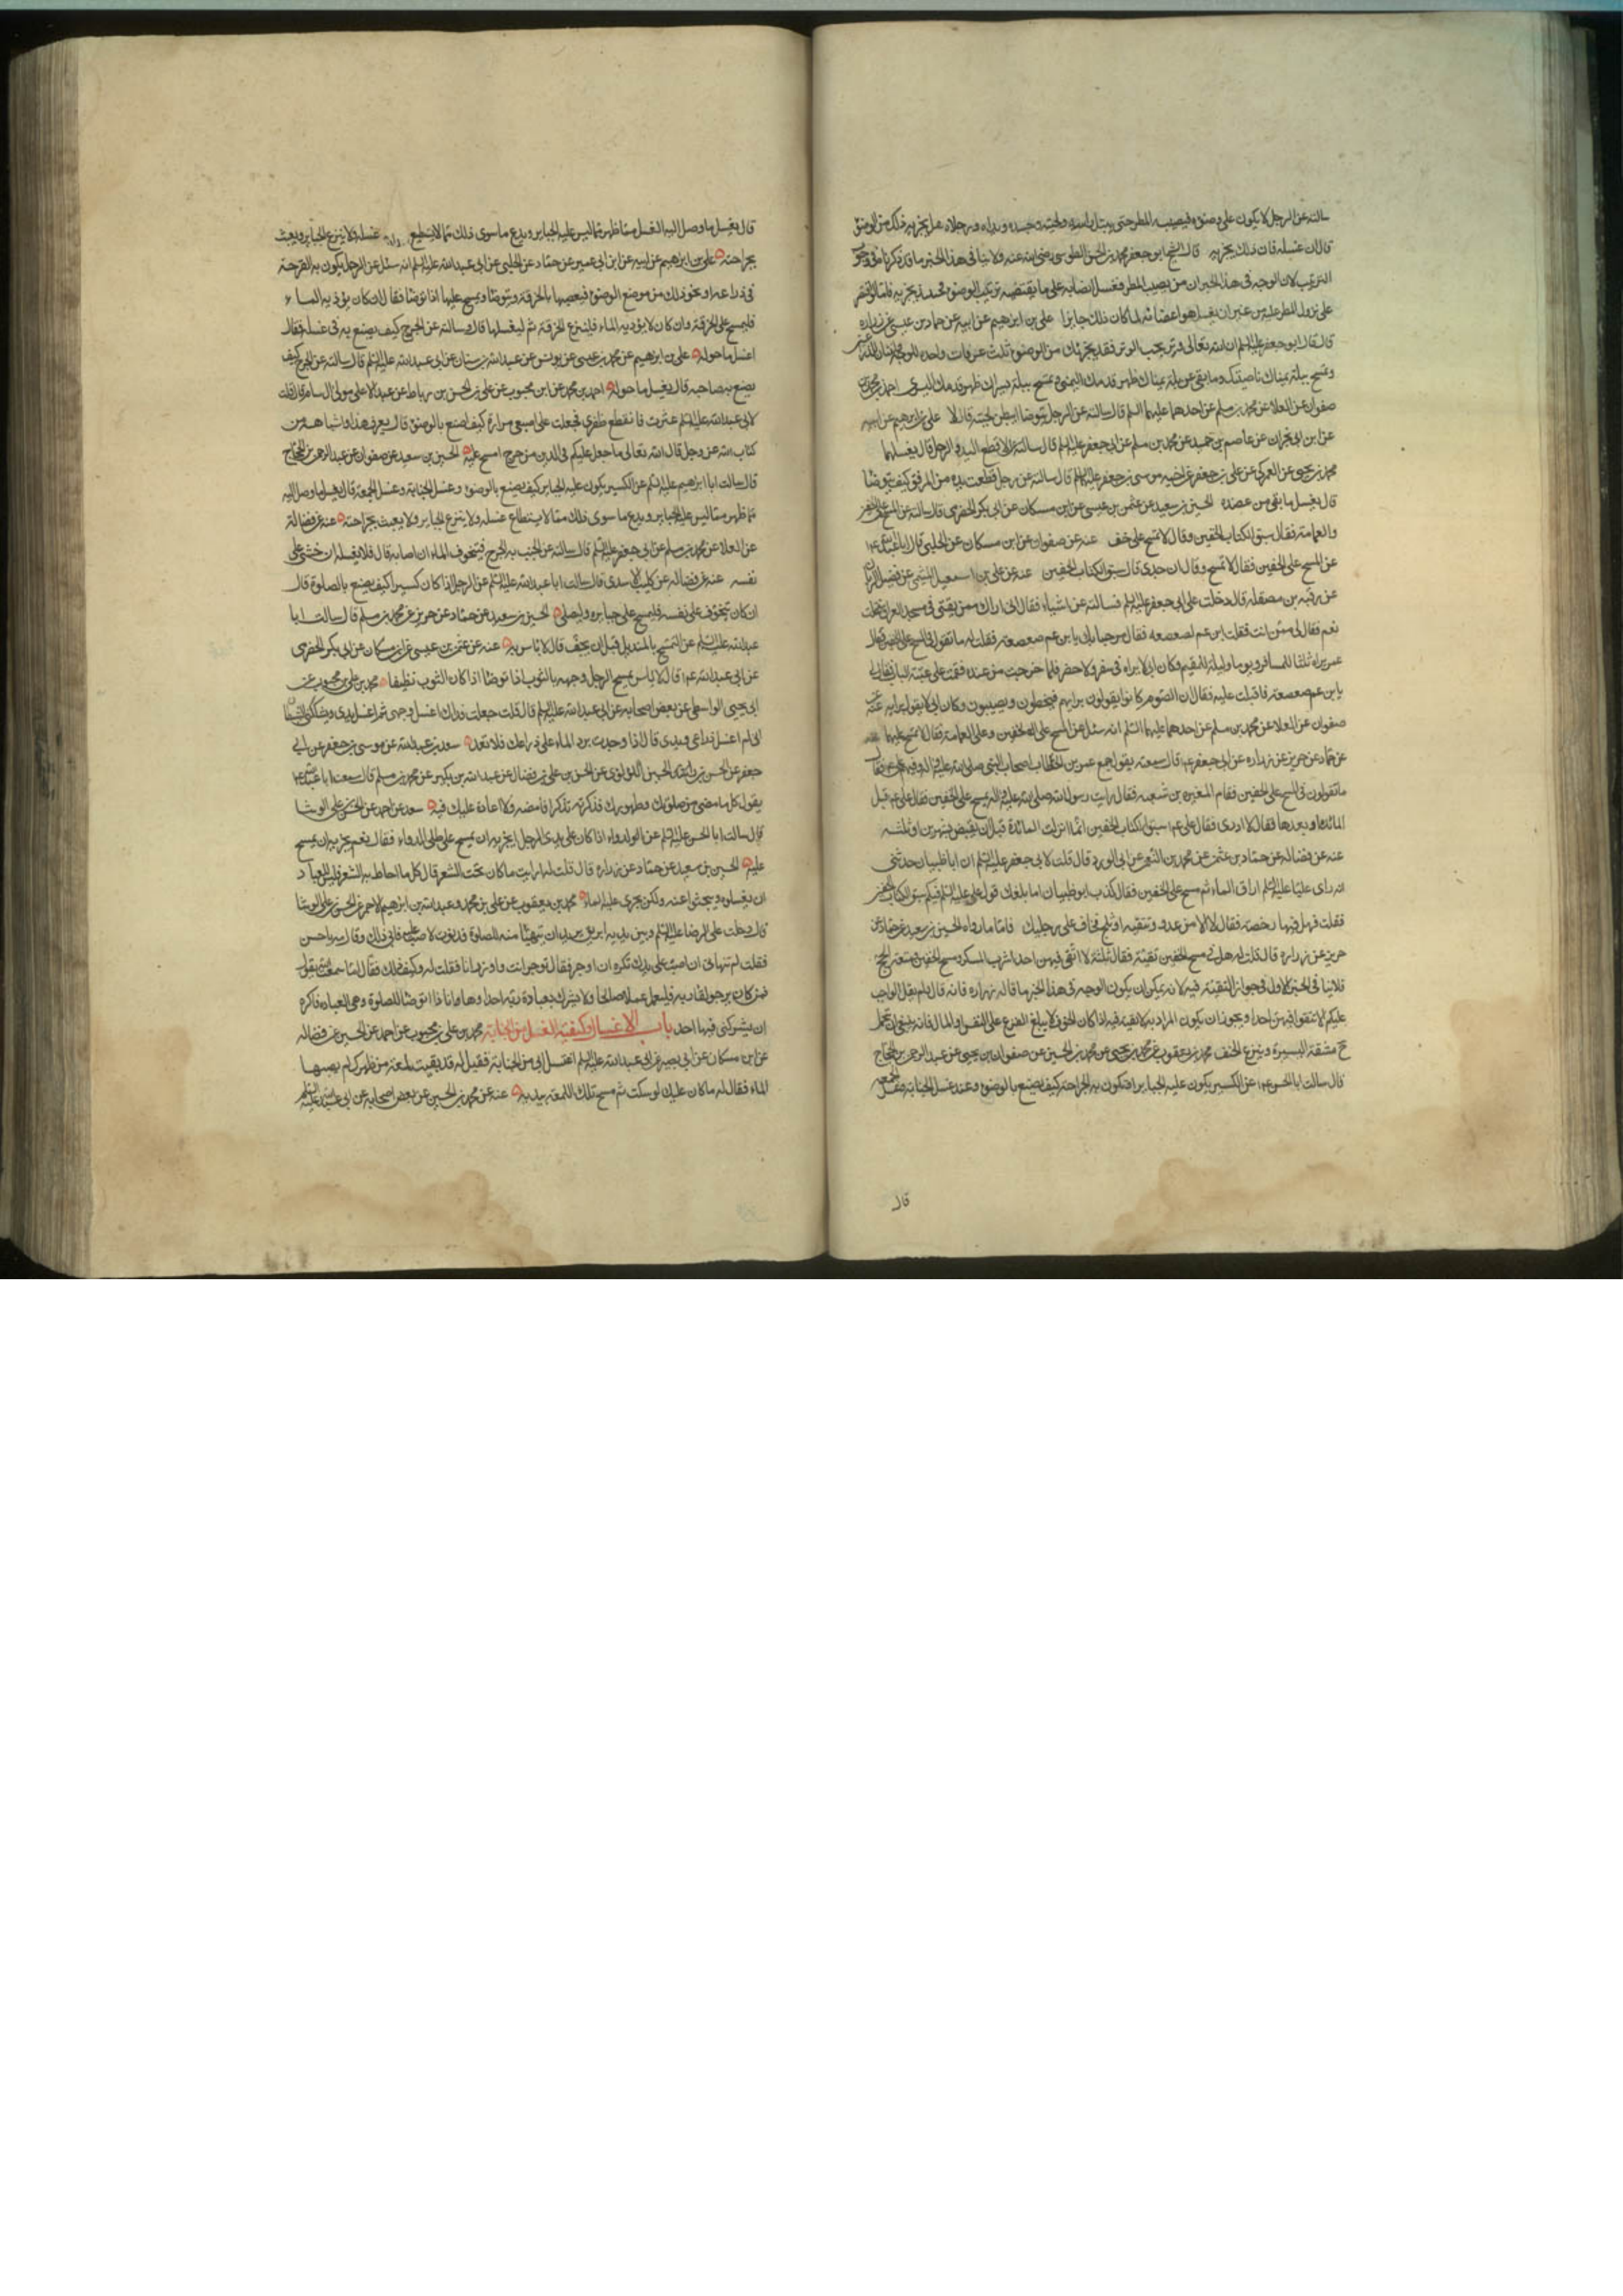 سالته عن الرجل لا يكون على وضوء فيصيبه المطر حتى يبتل راسه ولحيته وجسده ويداه ورجلاه هل يجزيه ذلك من الوضوء
قال ان غسله فان ذلك يجزيه قال الشيخ ابو جعفر محمد بن الحسن الطوسي رضي الله عنه ولا ينافي هذا الخبر ما قد ذكرناه في وجوب
الترتيب لان الوجه في هذا الخبر ان من يصيب المطر فغسل اعضاءه على ما يقتضيه ترتيب الوضوء فحينئذ يجزيه فاما لو اقتصر
على نزول المطر عليه من غير ان يغسل هو اعضائه لما كان ذلك جايزا علي بن ابرهيم عن ابيه عن حماد بن عيسى عن زراره
قال قال ابو جعفر عليه السلام ان الله تعالى وتر يحب الوتر فقد يجزئك من الوضوء ثلث غرفات واحده للوجه واثنتان للذراعين
وتمسح ببلة يمناك ناصيتك وما بقى من بلة يمناك ظهر قدمك اليمنى وتمسح ببلة يسراك ظهر قدمك اليسرى احمد بن محمد عن
صفوان عن العلا عن محمد بن مسلم عن احدهما عليهما السلم قال سالته عن الرجل يتوضا ايبطن لحيته قال لا علي بن ابرهيم عن ابيه
عن ابن ابي نجران عن عاصم بن حميد عن محمد بن مسلم عن ابي جعفر عليه السلم قال سالته عن الاقطع اليد والرجل قال يغسلهما
محمد بن يحيى عن العمركي عن علي بن جعفر عن اخيه موسى بن جعفر عليه السلام قال سالته عن رجل قطعت يده من المرفق كيف يتوضا
قال يغسل ما بقى من عضده الحسين بن سعيد عن عثمن بن عيسى عن ابن مسكان عن ابي بكر الحضرمى قال سالته عن المسح على الخفين
والعمامة فقال سبق الكتاب الخفين وقال لا تمسح على خف عنه عن صفوان عن ابن مسكان عن الحلبي قال سالت ابا عبد الله ع
عن المسح على الخفين فقال لا تمسح وقال ان جدى قال سبق الكتاب الخفين عنه عن علي بن اسمعيل الميثمي عن فضيل الرسان
عن رقبه بن مصقله قال دخلت على ابي جعفر عليه السلم فسالته عن اشياء فقال انى اراك ممن يفتى في مسجد العراق فقلت
نعم فقال لي ممن انت فقلت ابن عم لصعصعه فقال مرحبا بك يا بن عم صعصعه فقلت له ما تقول في المسح على الخفين فقال كان
عمر يراه ثلثا للمسافر ويوما وليلة للمقيم وكان ابي لا يراه في سفر ولا حضر فلما خرجت من عنده فقمت على عتبة الباب فقال لي
يا بن عم صعصعة فاقبلت عليه فقال ان القوم كانوا يقولون برايهم فيخطئون ويصيبون وكان ابي لا يقول برايه عنه عن
صفوان عن العلا عن محمد بن مسلم عن احدهما عليهما السلم انه سئل عن المسح على الخفين وعلى العمامة فقال لا تمسح عليهما
عن حماد عن حريز عن زراره عن ابي جعفر ع قال سمعته يقول جمع عمر بن الخطاب اصحاب النبي صلى الله عليه واله وفيهم علي ع فقال
ما تقولون في المسح على الخفين فقام المغيره بن شعبه فقال رايت رسول الله صلى الله عليه واله يمسح على الخفين فقال علي ع قبل
المائدة او بعدها فقال لا ادرى فقال علي ع سبق الكتاب الخفين انما انزلت المائدة قبل ان يقبض بشهرين او ثلثه
عنه عن فضاله عن حماد بن عثمن عن محمد بن النعمن عن ابي الورد قال قلت لابي جعفر عليه السلم ان ابا ظبيان حدثنى
انه راى عليا عليه السلم اراق الماء ثم مسح على الخفين فقال كذب ابو ظبيان اما بلغك قول علي عليه السلم فيكم سبق الكتاب الخفين
فقلت فهل فيهما رخصة فقال لا الا من عدو تتقيه او ثلج تخاف على رجليك فاما ما رواه الحسين بن سعيد عن حماد عن
حريز عن زراره قال قلت له هل في مسح الخفين تقيه فقال ثلثة لا اتقى فيهن احدا شرب المسكر ومسح الخفين ومتعة الحج
فلا ينافي الخبر الاول في جواز التقية فيه لانه يمكن ان يكون الوجه في هذا الخبر ما قاله زراره فانه قال لم يقل الواجب
عليكم الا تتقوا فيهن احدا ويجوز ان يكون المراد به لا تقية فيه اذا كان الخوف لا يبلغ الفزع على النفس او المال فانه ينبغي ان تتحمل
ح مشقة اليسيرة وينزع الخف محمد بن يعقوب عن محمد بن يحيى عن محمد بن الحسين عن صفوان بن يحيى عن عبد الرحمن بن الحجاج
قال سالت ابا الحسن ع عن الكسير يكون عليه الجباير او تكون به الجراحة كيف يصنع بالوضوء وعند غسل الجنابة وغسل الجمعه
قال
قال يغسل ما وصل اليه الغسل مما ظهر مما ليس عليه الجباير ويدع ما سوى ذلك مما لا يستطيع غسله ولا ينزع الجباير ويعبث
بجراحته علي بن ابرهيم عن ابيه عن ابن ابي عمير عن حماد عن الحلبي عن ابي عبد الله عليه السلم انه سئل عن الرجل يكون به القرحة
في ذراعه او نحو ذلك من موضع الوضوء فيعصبها بالخرقة ويتوضا ويمسح عليها اذا توضا فقال ان كان يؤذيه الماء
فليمسح على الخرقة وان كان لا يؤذيه الماء فلينزع الخرقة ثم ليغسلها قال وسالته عن الجرح كيف يصنع به في غسله فقال
اغسل ما حوله علي بن ابرهيم عن محمد بن عيسى عن يونس عن عبد الله بن سنان عن ابي عبد الله عليه السلم قال سالته عن الجرح كيف
يصنع به صاحبه قال يغسل ما حوله احمد بن محمد عن ابن محبوب عن علي بن الحسن بن رباط عن عبد الاعلى مولى ال سام قال قلت
لابي عبد الله عليه السلم عثرت فانقطع ظفري فجعلت على اصبعي مرارة كيف اصنع بالوضوء قال يعرف هذا واشباهه من
كتاب الله عز وجل قال الله تعالى ما جعل عليكم في الدين من حرج امسح عليه الحسين بن سعيد عن صفوان عن عبد الرحمن بن الحجاج
قال سالت ابا ابرهيم عليه السلم عن الكسير يكون عليه الجباير كيف يصنع بالوضوء وغسل الجنابة وغسل الجمعة قال يغسل ما وصل اليه
مما ظهر مما ليس عليه الجباير ويدع ما سوى ذلك مما لا يستطاع غسله ولا ينزع الجباير ولا يعبث بجراحته عنه عن فضالة
عن العلا عن محمد بن مسلم عن ابي جعفر عليه السلم قال سالته عن الجنب به الجرح فيتخوف الماء ان اصابه قال فلا يغسله ان خشى على
نفسه عنه عن فضاله عن كليب الاسدى قال سالت ابا عبد الله عليه السلم عن الرجل اذا كان كسيرا كيف يصنع بالصلوة قال
ان كان يتخوف على نفسه فليمسح على جبايره وليصلى الحسين بن سعيد عن حماد عن حريز عن محمد بن مسلم قال سالت ابا
عبد الله عليه السلم عن التمسح بالمنديل قبل ان يجف قال لا باس به عنه عن عثمن بن عيسى عن ابن مسكان عن ابي بكر الحضرمى
عن ابي عبد الله ع قال لا باس بمسح الرجل وجهه بالثوب اذا توضا اذا كان الثوب نظيفا محمد بن علي بن محبوب عن
ابي يحيى الواسطي عن بعض اصحابه عن ابي عبد الله عليه السلم قال قلت جعلت فداك اغسل وجهى ثم اغسل يدى ويشككنى الشيطان
انى لم اغسل ذراعى ويدى قال اذا وجدت برد الماء على ذراعك فلا تعد سعد بن عبد الله عن موسى بن جعفر عن ابي
جعفر عن الحسن بن الحسين اللؤلؤى عن الحسن بن علي بن فضال عن عبد الله بن بكير عن محمد بن مسلم قال سمعت ابا عبد الله ع
يقول كل ما مضى من صلوتك وطهورك فذكرته تذكرا فامضه ولا اعادة عليك فيه سعد عن احمد عن الحسن بن علي الوشا
قال سالت ابا الحسن عليه السلم عن الدواء اذا كان على يدى الرجل ايجزيه ان يمسح على طلى الدواء فقال نعم يجزيه ان يمسح
عليه الحسين بن سعيد عن حماد عن زراره قال قلت له ارايت ما كان تحت الشعر قال كل ما احاط به الشعر فليس للعباد
ان يغسلوه ويبحثوا عنه ولكن يجرى عليه الماء محمد بن يعقوب عن علي بن محمد وعبد الله بن ابرهيم الاحمر عن الحسن بن علي الوشا
قال دخلت على الرضا عليه السلم وبين يديه ابريق يريد ان يتهيئا منه للصلوة فدنوت لاصب عليه فابى ذلك وقال مه يا حسن
فقلت لم تنهانى ان اصب على يدك تكره ان اوجر فقال توجر انت واوزر انا فقلت له وكيف ذلك فقال اما سمعت الله يقول
فمن كان يرجو لقاء ربه فليعمل عملا صالحا ولا يشرك بعبادة ربه احدا وها انا ذا اتوضا للصلوة وهي العباده فاكره
ان يشركنى فيها احد باب الاغسال وكيفية الغسل من الجنابة محمد بن علي بن محبوب عن احمد عن الحسين عن فضاله
عن ابن مسكان عن ابي بصير عن ابي عبد الله عليه السلم اغتسل ابي من الجنابة فقيل له قد بقيت لمعة من ظهرك لم يصبها
الماء فقال له ما كان عليك لو سكت ثم مسح تلك اللمعة بيده عنه عن محمد بن الحسين عن بعض اصحابه عن ابي عبد الله عليه السلم